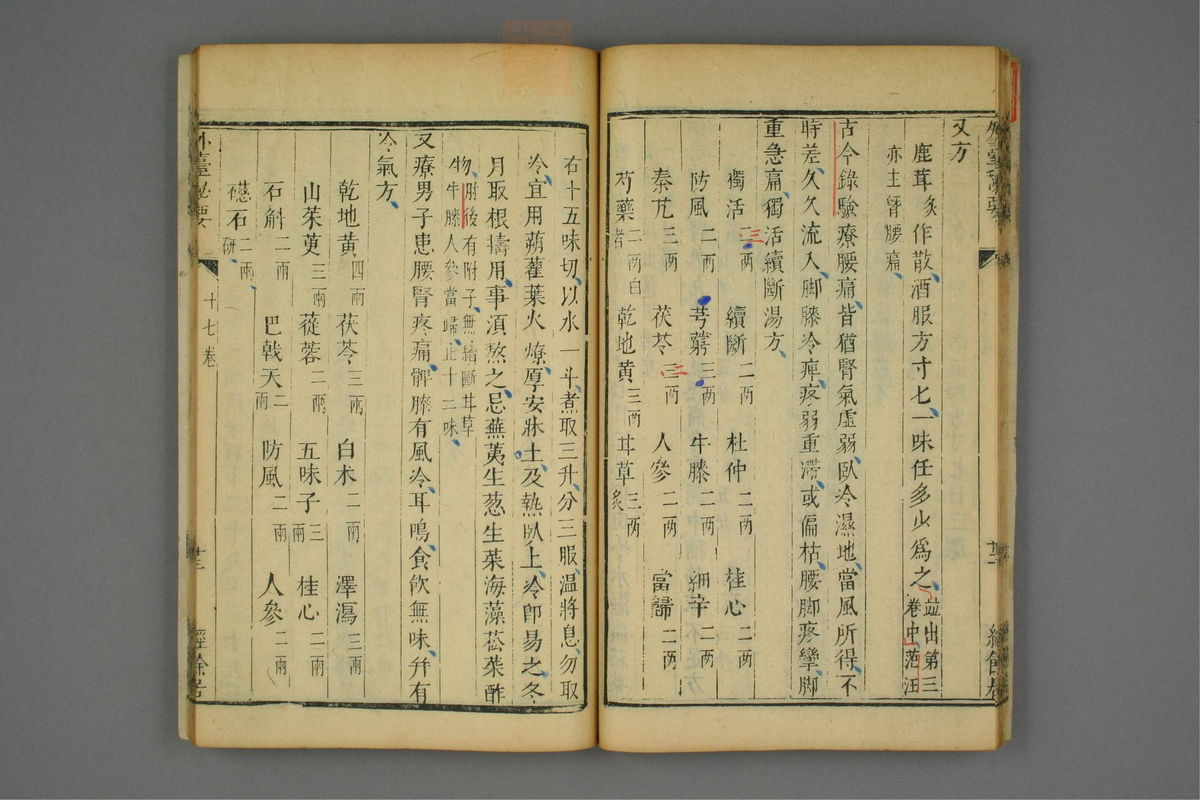 又方
鹿茸炙 作散酒服方寸匕一味任多少爲之並出第三卷中范汪
亦主腎腰痛
古今錄驗療腰痛皆猶腎氣虛弱臥冷濕地當風所得不
時差久久流入脚膝冷痺疼弱重滯或偏枯腰脚疼攣脚
重急痛獨活續斷湯方
獨活二两 續斷二两 杜仲二两 桂心二两
防風二两 芎藭三两 牛膝二两 細辛二两
秦艽三两 茯苓三两 人參二两 當歸二两
芍藥二两白者 乾地黃三两 甘草三两炙
右十五味切以水一斗煮取三升分三服温將息勿取
冷宜用蒴藋葉火燎厚安牀土及熱臥上冷卽易之冬
月取根擣用事湏熬之忌蕪荑生葱生菜海藻菘菜酢
物肘後有附子無續斷甘草牛膝人參當歸止十二味
又療男子患腰腎疼痛髀膝有風冷耳鳴食飲無味幷有
冷氣方
乾地黃四兩 茯苓三兩 白术二兩 澤瀉三兩
山茱萸三兩 蓯蓉二兩 五味子三兩 桂心二兩
石斛二兩 巴戟天二兩 防風二兩 人參二兩
磁石二兩研
外臺秘要
十七卷
廿三
經餘居